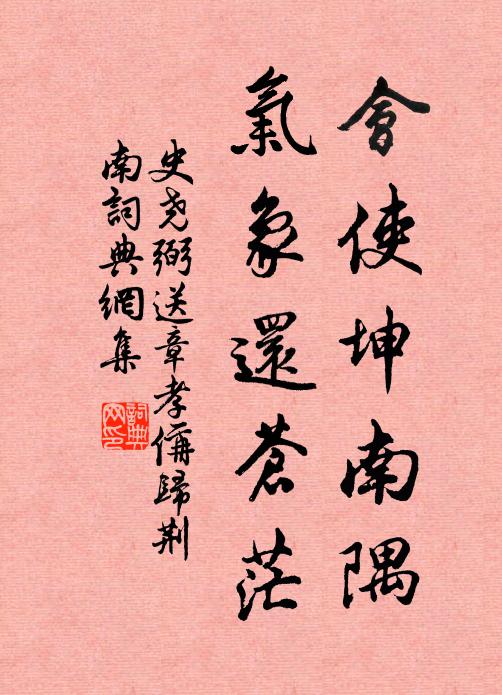 會使坤南隅
氣象還蒼茫
史堯弼送章孝儔歸荆
南詞典網集
詞典网印